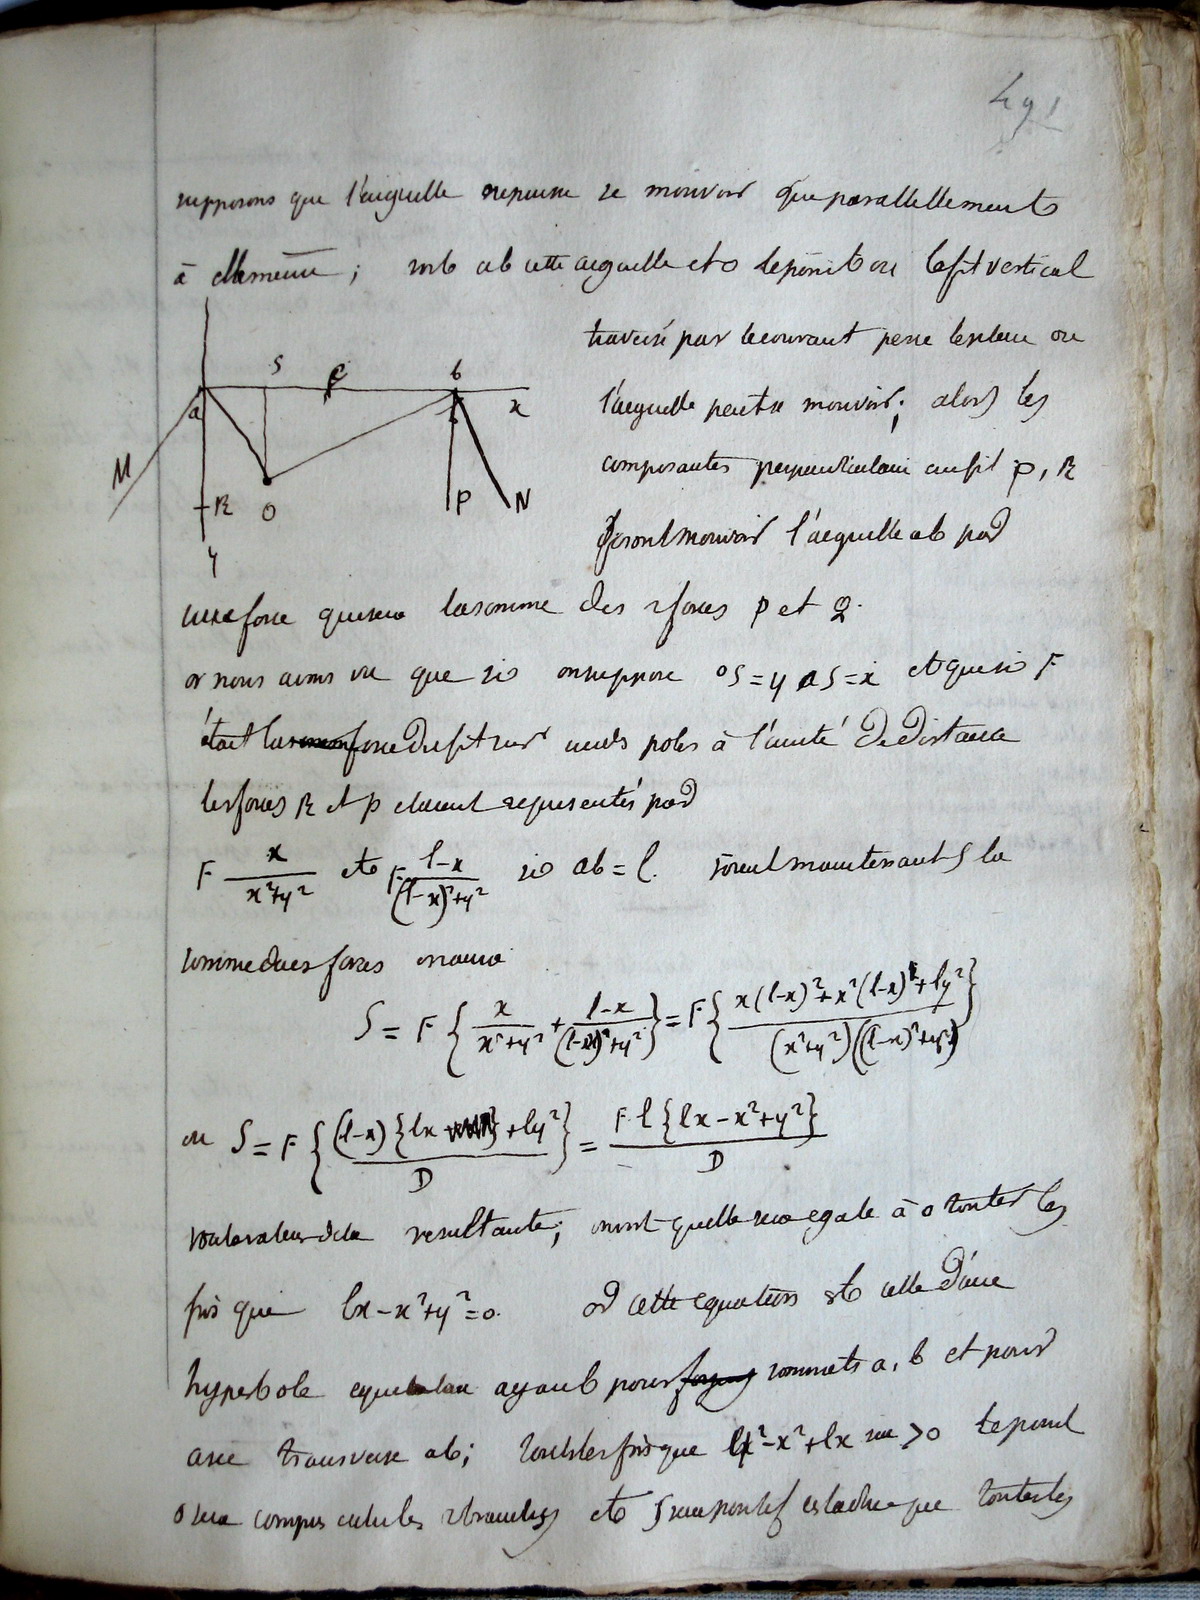 491
supposons que l'aiguille ne puisse se mouvoir que parallellement
à elle meme ; soit ab cette aiguille et o le point ou le fil vertical
traversé par le courant perce le plan ou
l'aiguille peut se mouvoir ; alors les
composantes perpendiculaire au fil P, R
feront mouvoir l'aiguille ab par
S C b
a x
M R O P N
y
une force qui sera la somme des 2 forces P et Q.
or nous avons vu que si on suppose oS = y aS = x et que si F
était la force du fil sur un des poles à l'unité de distance
les forces R et P etaient representés par
F x/(x²+y²) et F (l-x)/((l-x)²+y²) si ab = l. soit maintenant S la
somme des forces on aura
S = F { x/(x²+y²) + (l-x)/((l-x)²+y²) } = F { (x(l-x)²+x²(l-x)+ly²)/((x²+y²)((l-x)²+y²)) }
ou S = F { ((l-x){lx} + ly²)/D } = F l {lx - x²+y²}/D
valeur de la resultante ; on voit qu'elle sera egale à 0 toutes les
fois que lx - x²+y² = 0. or cette equation est celle d'une
hyperbole equilatere ayant pour sommets a, b et pour
axe transverse ab ; toutes les fois que y² - x² + lx sera > 0 le point
o sera compris entre les branches et S sera positif c'est a dire que toutes les